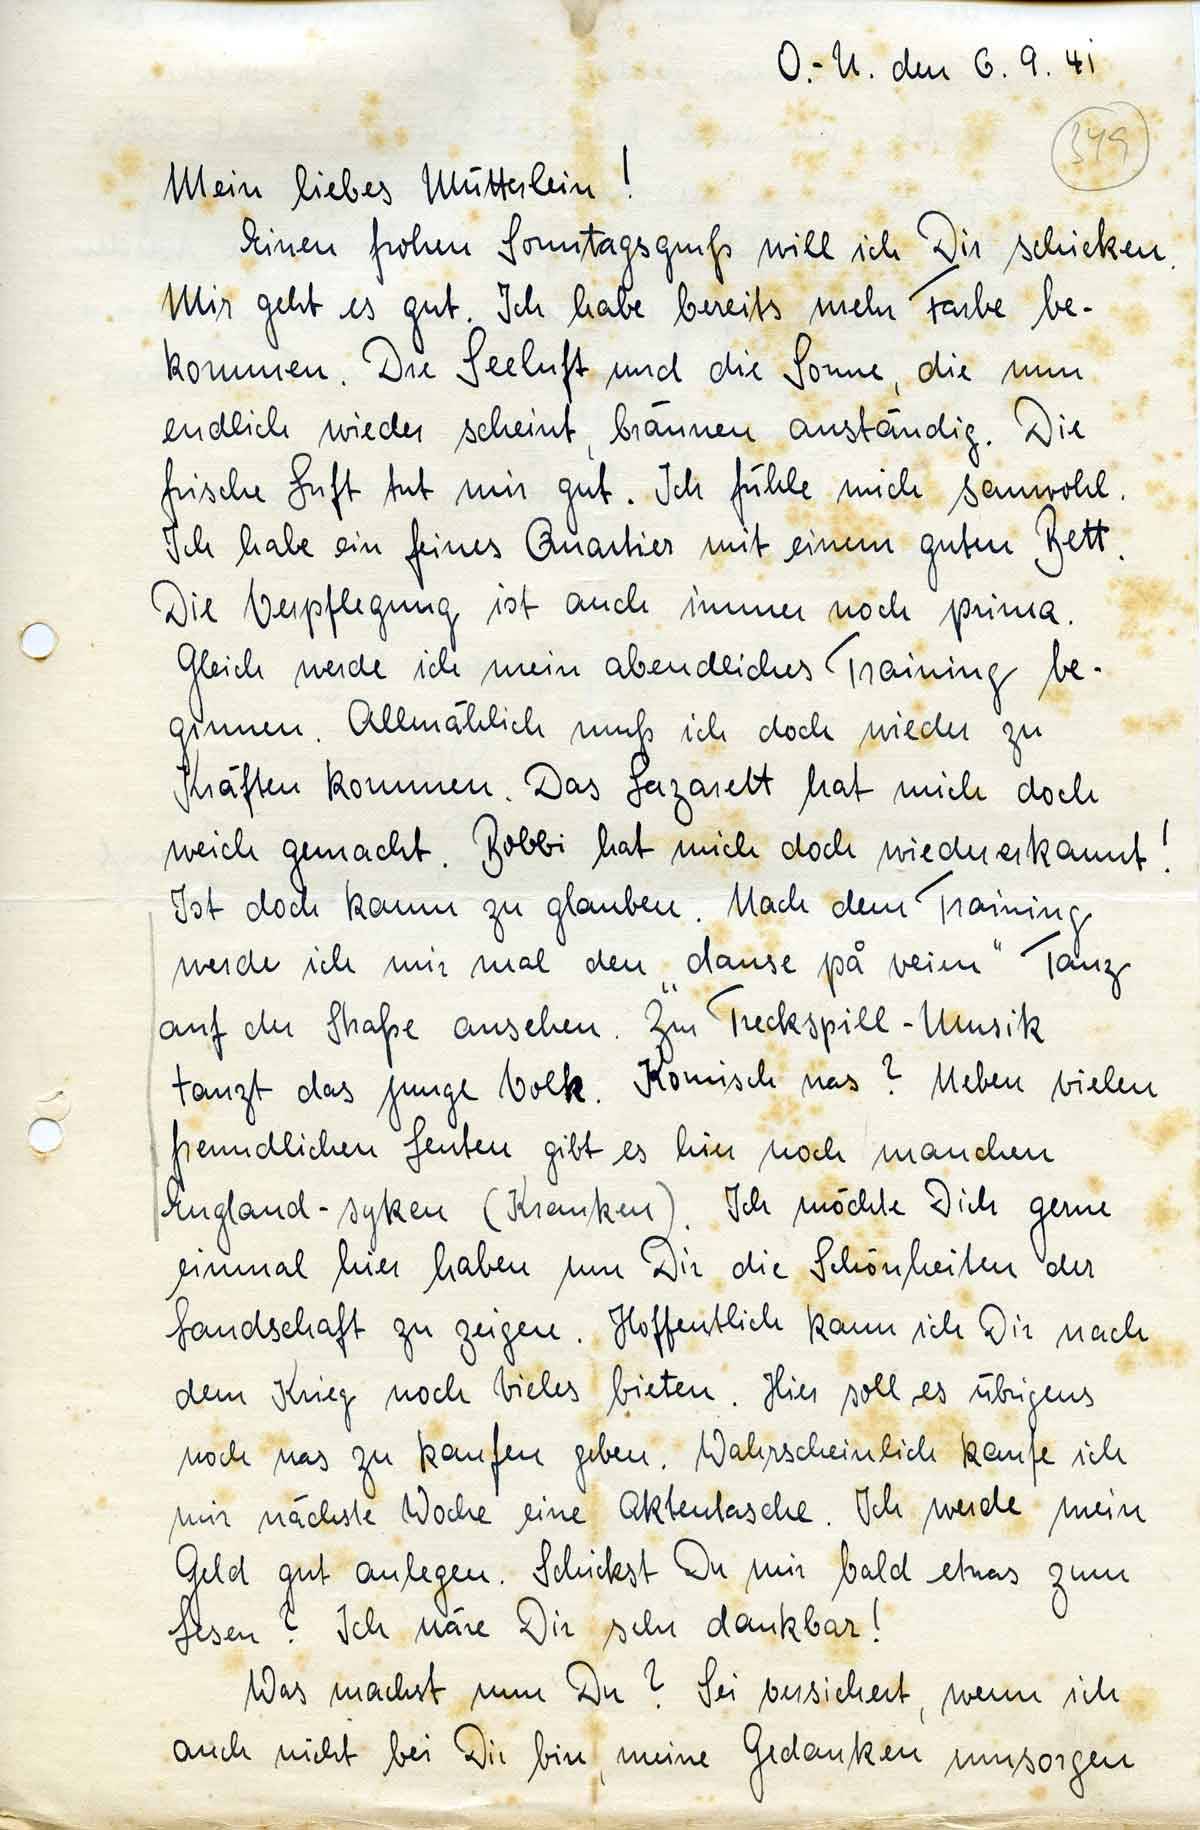 O.-U. den 6. 9. 41
349
Mein liebes Mütterlein!
Einen frohen Sonntagsgruß will ich Dir schicken.
Mir geht es gut. Ich habe bereits mehr Farbe be-
kommen. Die Seeluft und die Sonne, die nun
endlich wieder scheint, bräunen anständig. Die
frische Luft tut mir gut. Ich fühle mich sauwohl.
Ich habe ein feines Quartier mit einem guten Bett.
Die Verpflegung ist auch immer noch prima.
Gleich werde ich mein abendliches Training be-
ginnen. Allmählich muß ich doch wieder zu
Kräften kommen. Das Lazarett hat mich doch
weich gemacht. Bobbi hat mich doch wiedererkannt!
Ist doch kaum zu glauben. Nach dem Training
werde ich mir mal den „danse på veien“ Tanz
auf der Straße ansehen. Zur Treckspill-Musik
tanzt das junge Volk. Komisch was? Neben vielen
freundlichen Leuten gibt es hier noch manchen
England-syken (Kranken). Ich möchte Dich gerne
einmal hier haben um Dir die Schönheiten der
Landschaft zu zeigen. Hoffentlich kann ich Dir nach
dem Krieg noch vieles bieten. Hier soll es übrigens
noch was zu kaufen geben. Wahrscheinlich kaufe ich
mir nächste Woche eine Aktentasche. Ich werde mein
Geld gut anlegen. Schickst Du mir bald etwas zum
Lesen? Ich wäre Dir sehr dankbar!
Was machst nun Du? Sei versichert, wenn ich
auch nicht bei Dir bin, meine Gedanken umsorgen